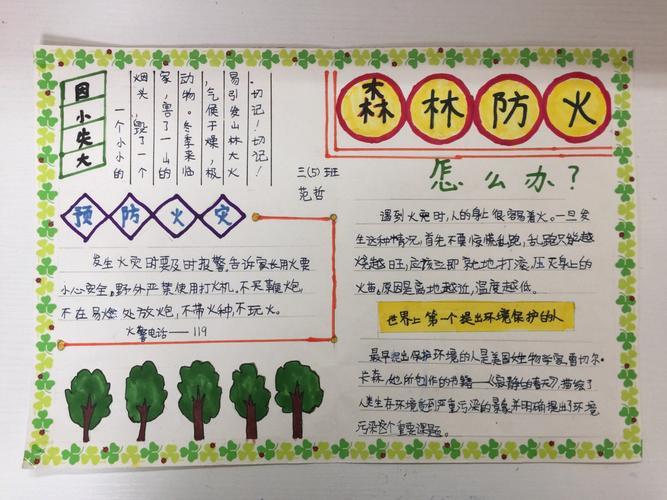 因小失大
一个小小的
烟头,毁了一个
家,害了一山的
动物。冬季来临
,气候干燥,极
易引发山林大火
.切记!切记!
三(5)班
范哲
森林防火
怎么办?
预防火灾
发生火灾时要及时报警,告诉家长用火要
小心安全。野外严禁使用打火机,不买鞭炮,
不在易燃处放炮,不带火种,不玩火。
火警电话——119
遇到火灾时,人的身上很容易着火。一旦发
生这种情况,首先不要惊慌乱跑,乱跑只能越
烧越旺,应该立即就地打滚,压灭身上的
火苗,原因是离地越近,温度越低。
世界上第一个提出环境保护的人
最早提出保护环境的人是美国女生物学家雷切尔·
卡森,她所创作的书籍——《寂静的春天》,描绘了
人类生在环境受到严重污染的景象,并明确提出了环境
污染这个重要课题。